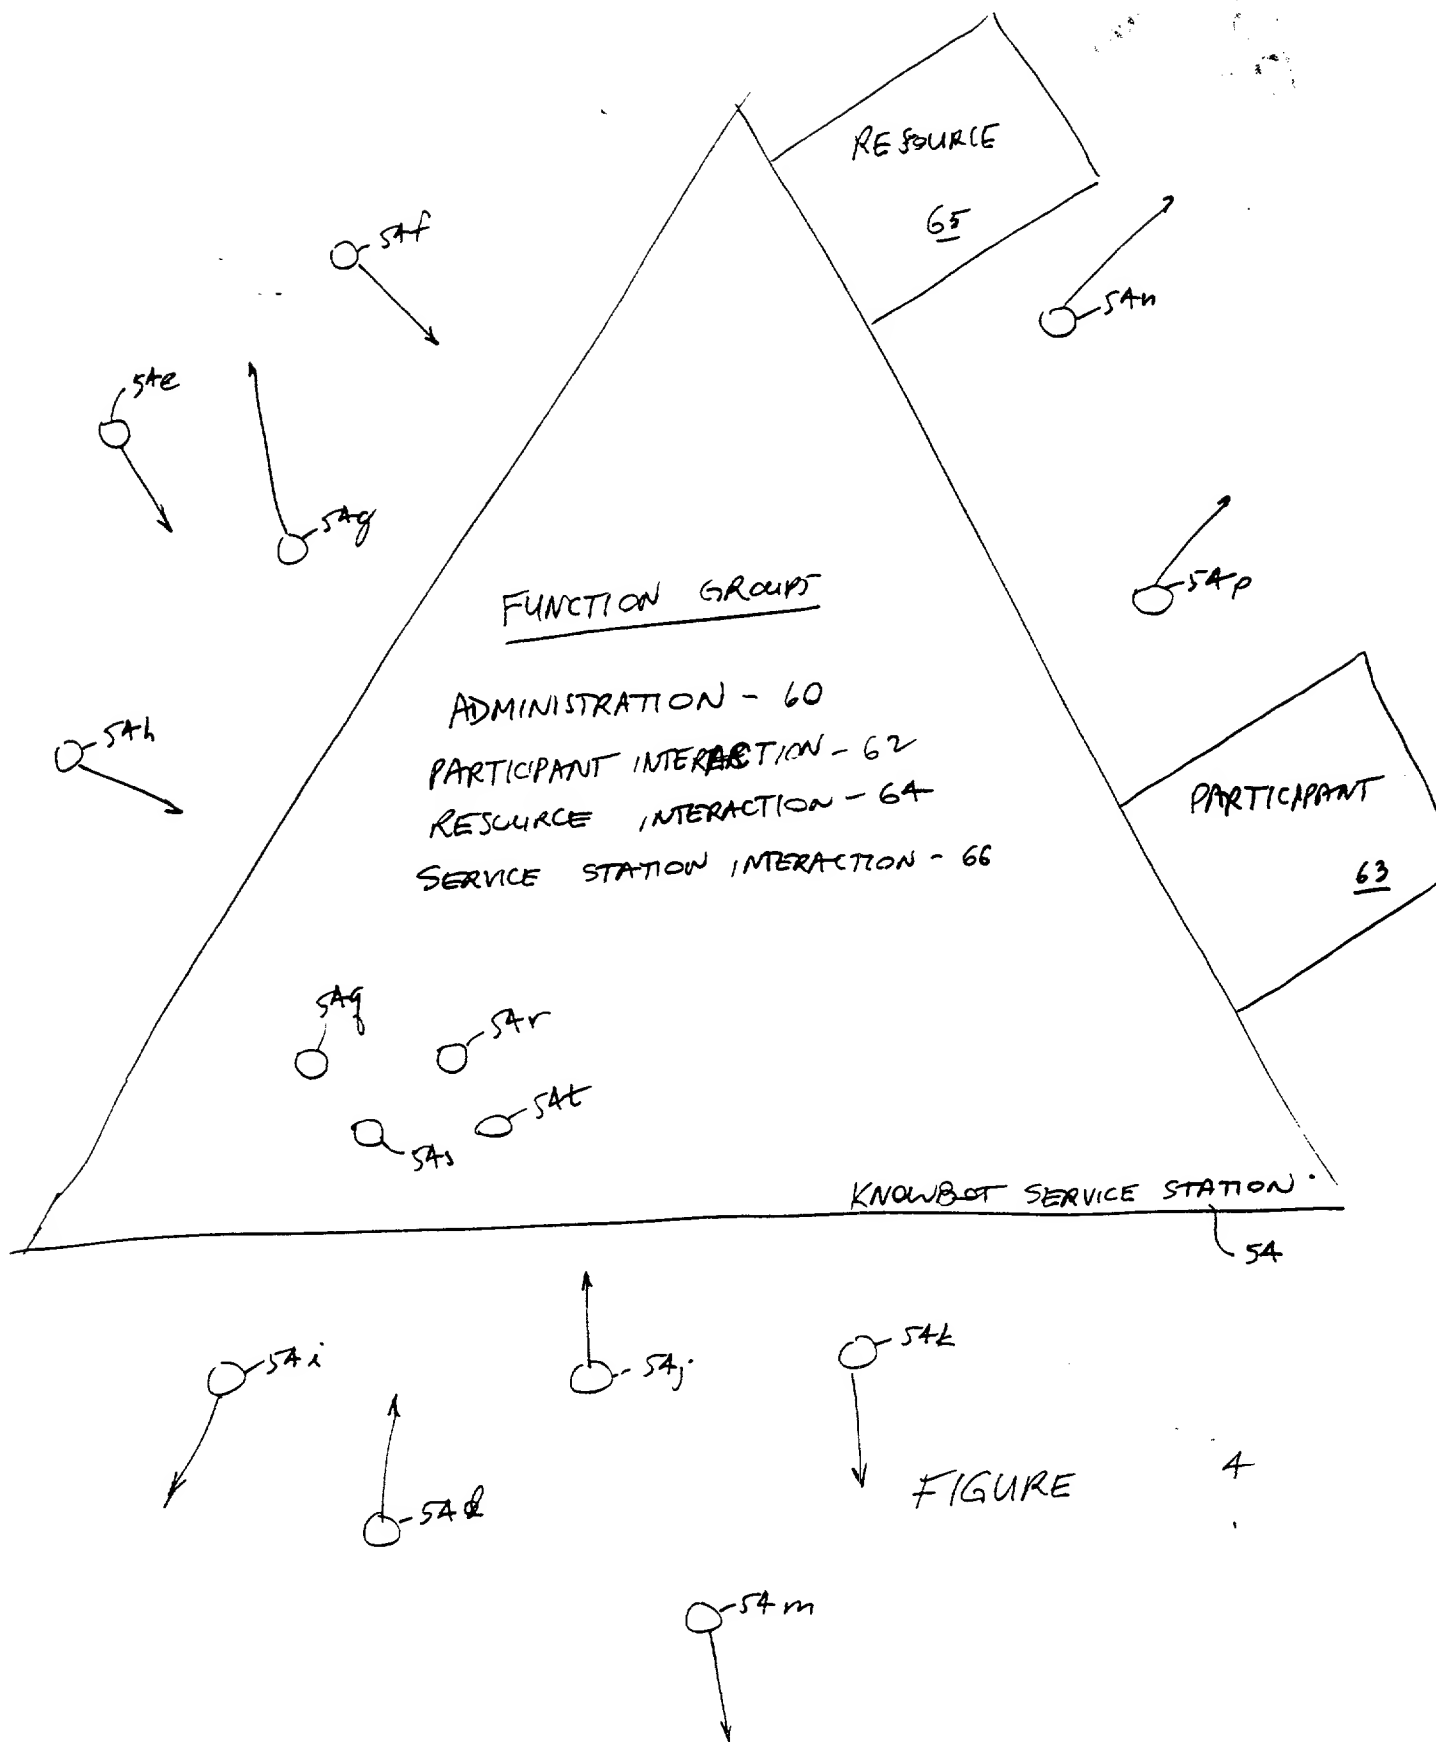 RESOURCE
65
54f
54n
54e
54g
54p
FUNCTION GROUPS
ADMINISTRATION - 60
54h
PARTICIPANT INTERACTION - 62
PARTICIPANT
RESOURCE INTERACTION - 64
SERVICE STATION INTERACTION - 66
63
54q
54r
54t
54s
KNOWBOT SERVICE STATION
54
54i
54j
54k
FIGURE 4
54l
54m